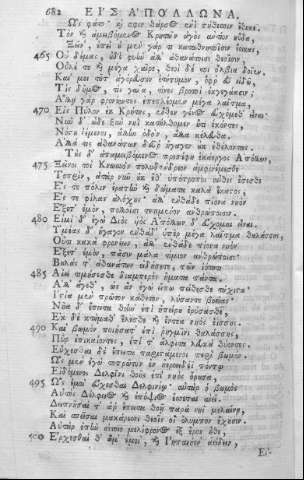 682 ΕΙΣ ΑΠΟΛΛΩΝΑ.
Ὣς φάτο· καί σφιν θάρσος ἐνὶ στήθεσσιν ἔθηκε.
Τὸν καὶ ἀμειβόμενος Κρητῶν ἀγὸς ἀντίον ηὔδα,
Ξεῖν', ἐπεὶ οὐ μὲν γάρ τι καταθνητοῖσιν ἔοικας,
465 Οὐ δέμας, οὐδὲ φυὴν, ἀλλ' ἀθανάτοισι θεοῖσιν,
Οὖλέ τε καὶ μέγα χαῖρε, θεοὶ δέ τοι ὄλβια δοῖεν.
Καί μοι τοῦτ' ἀγόρευσον ἐτήτυμον, ὄφρ' εὖ εἰδῶ,
Τίς δῆμος, τίς γαῖα, τίνες βροτοὶ ἐκγεγάασιν;
Ἄλλῃ γὰρ φρονέοντες ἐπεπλέομεν μέγα λαῖτμα,
470 Εἰς Πύλον ἐκ Κρήτης, ἔνθεν γένος εὐχόμεθ' εἶναι·
Νῦν δ' ὧδε ξὺν νηῒ κατήλθομεν οὔτι ἑκόντες,
Νόστου ἱέμενοι, ἄλλην ὁδὸν, ἄλλα κέλευθα·
Ἀλλά τις ἀθανάτων δεῦρ' ἤγαγεν οὐκ ἐθέλοντας.
Τοὺς δ' ἀπαμειβόμενος προσέφη ἑκάεργος Ἀπόλλων,
475 Ξεῖνοι τοὶ Κνωσσὸν πολυδένδρεον ἀμφινέμεσθε
Τοπρὶν, ἀτὰρ νῦν οὐκ ἔθ' ὑπότροποι αὖθις ἔσεσθε
Ἔς τε πόλιν ἐρατὴν καὶ δώματα καλὰ ἕκαστος,
Ἔς τε φίλας ἀλόχους· ἀλλ' ἐνθάδε πίονα νηὸν
Ἕξετ' ἐμὸν, πολλοῖσι τετιμένον ἀνθρώποισιν.
480 Εἰμὶ δ' ἐγὼ Διὸς υἱὸς Ἀπόλλων δ' εὔχομαι εἶναι.
Ὑμέας δ' ἤγαγον ἐνθάδ' ὑπὲρ μέγα λαῖτμα θαλάσσης,
Οὔτι κακὰ φρονέων, ἀλλ' ἐνθάδε πίονα νηὸν
Ἕξετ' ἐμὸν, πᾶσιν μάλα τίμιον ἀνθρώποισι·
Βουλάς τ' ἀθανάτων εἰδήσετε, τῶν ἰότητι
485 Αἰεὶ τιμήσεσθε διαμπερὲς ἤματα πάντα.
Ἀλλ' ἄγεθ', ὡς ἂν ἐγὼ εἴπω πείθεσθε τάχιστα·
Ἱστία μὲν πρῶτον κάθετον, λύσαντε βοείας·
Νῆα δ' ἔπειτα θοὴν ἐπὶ ἠπείρου ἐρύσασθε,
Ἐκ δὲ κτήμαθ' ἕλεσθε καὶ ἔντεα νηὸς ἐΐσης·
490 Καὶ βωμὸν ποιήσατ' ἐπὶ ῥηγμῖνι θαλάσσης,
Πῦρ ἐπικαίοντες, ἐπί τ' ἄλφιτα λευκὰ θύοντες·
Εὔχεσθαι δὴ ἔπειτα παριστάμενοι περὶ βωμόν.
Ὡς μὲν ἐγὼ τοπρῶτον ἐν ἠεροειδέϊ πόντῳ
Εἰδόμενος Δελφῖνι θοῆς ἐπὶ νηὸς ὄρουσα,
495 Ὣς ἐμοὶ εὔχεσθαι Δελφινίῳ· αὐτὰρ ὁ βωμὸς
Αὐτὸς Δέλφειος καὶ ἐπόψιος ἔσσεται αἰεί.
Δειπνῆσαί τ' ἄρ' ἔπειτα θοῇ παρὰ νηῒ μελαίνῃ,
Καὶ σπεῖσαι μακάρεσσι θεοῖς οἳ ὄλυμπον ἔχουσιν.
Αὐτὰρ ἐπὴν σίτοιο μελίφρονος ἐξ ἔρον ἧσθε,
500 Ἔρχεσθαί θ' ἅμ' ἐμοὶ, καὶ Ἰηπαιήον' ἀείδειν,
Εἰσ-